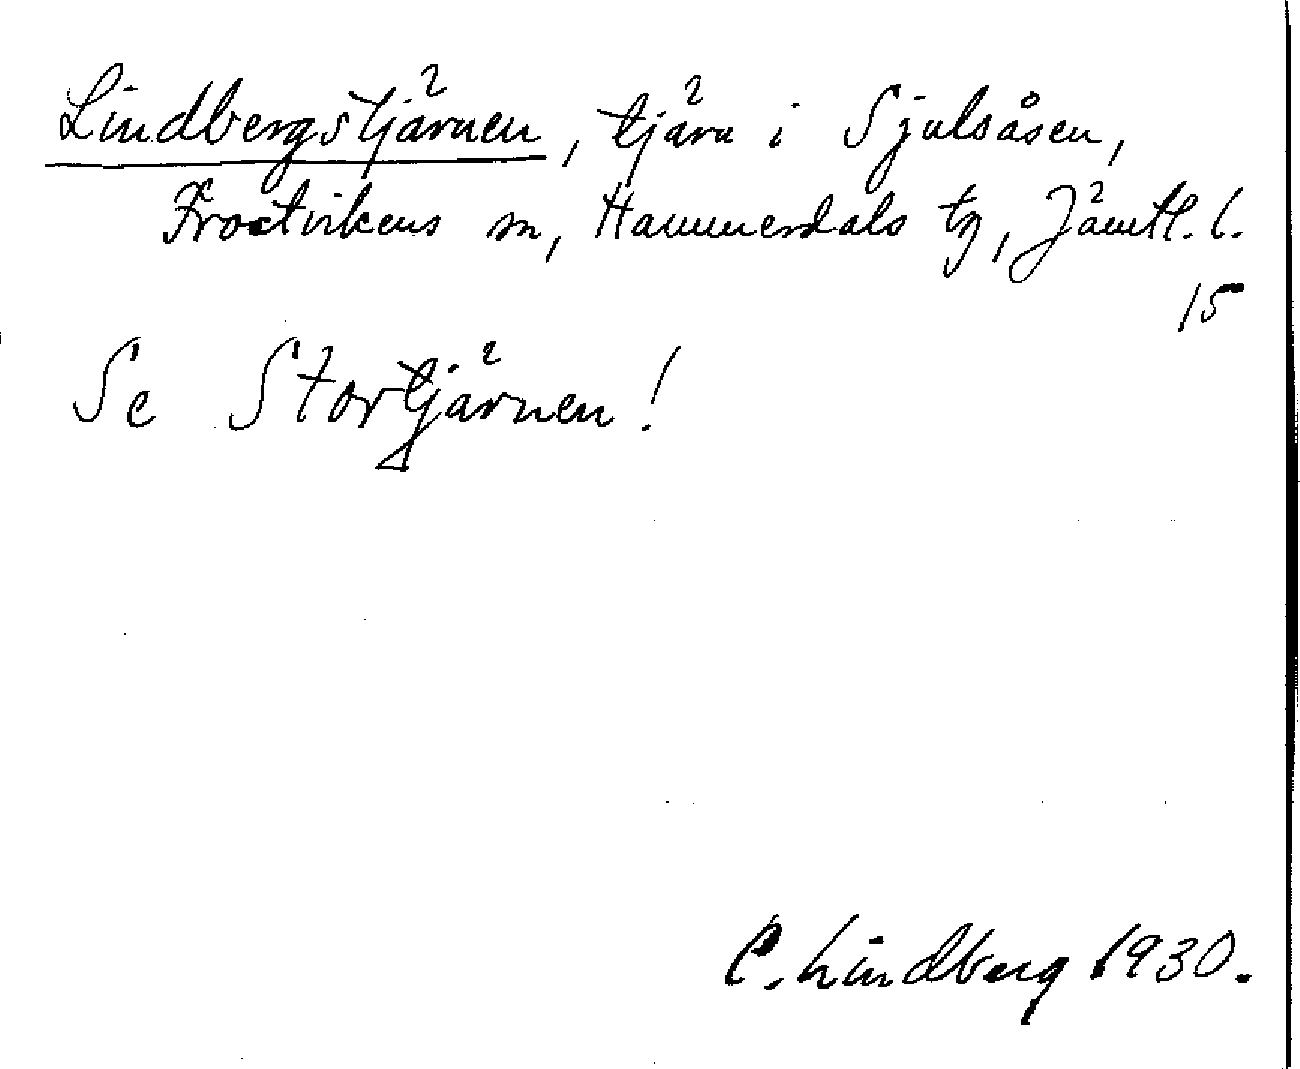 Lindbergstjärnen, tjärn i Sjulsåsen,
Frostvikens sn, Hammerdals tg, Jämtl. l.
15
Se Stortjärnen!
C. Lindberg 1930.